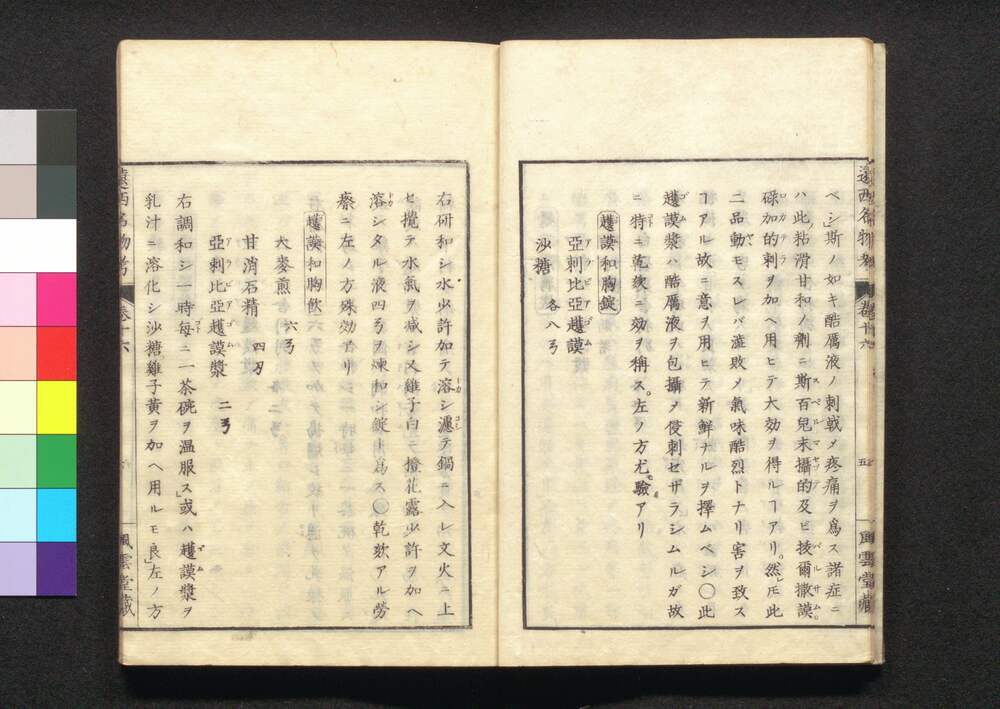 ベシ」斯ノ如キ酷厲液ノ刺戟メ疼痛ヲ爲ス諸症ニ
ハ此粘滑甘和ノ劑ニ斯百兒末攝的及ヒ拔爾撒謨
碌加的剌ヲ加ヘ用ヒテ大効ヲ得ルヿアリ。然𪜈此
二品動モスレバ淮敗メ氣味酷烈トナリ害ヲ致ス
ヿアル故ニ意ヲ用ヒテ新鮮ナルヲ擇ムベシ〇此
䞣謨漿ハ酷厲液ヲ包攝メ侵刺セザラシムルガ故
ニ特ニ乾欬ニ効ヲ稱ス。左ノ方尤驗アリ
䞣謨和胸錠
亞剌比亞䞣謨
沙糖 各八ゟ
右研和シ水少許加テ溶シ濾テ鍋ニ入レ文火ニ上
ヒ攪テ水氣ヲ减シ又雞子白ニ橙花露少許ヲ加ヘ
溶シタル液四ゟヲ煉和シ錠ト爲ス〇乾欬アル勞
瘵ニ左ノ方殊効アリ
䞣謨和胸飲
大麥煎 六ゟ
甘消石精 四刄
亞剌比亞䞣謨漿 二ゟ
右調和シ一時每ニ一茶碗ヲ温服ス」或ハ䞣謨漿ヲ
乳汁ニ溶化シ沙糖雞子黄ヲ加ヘ用ルモ良」左ノ方
遠西名物考 卷廿六 五 風雲堂藏